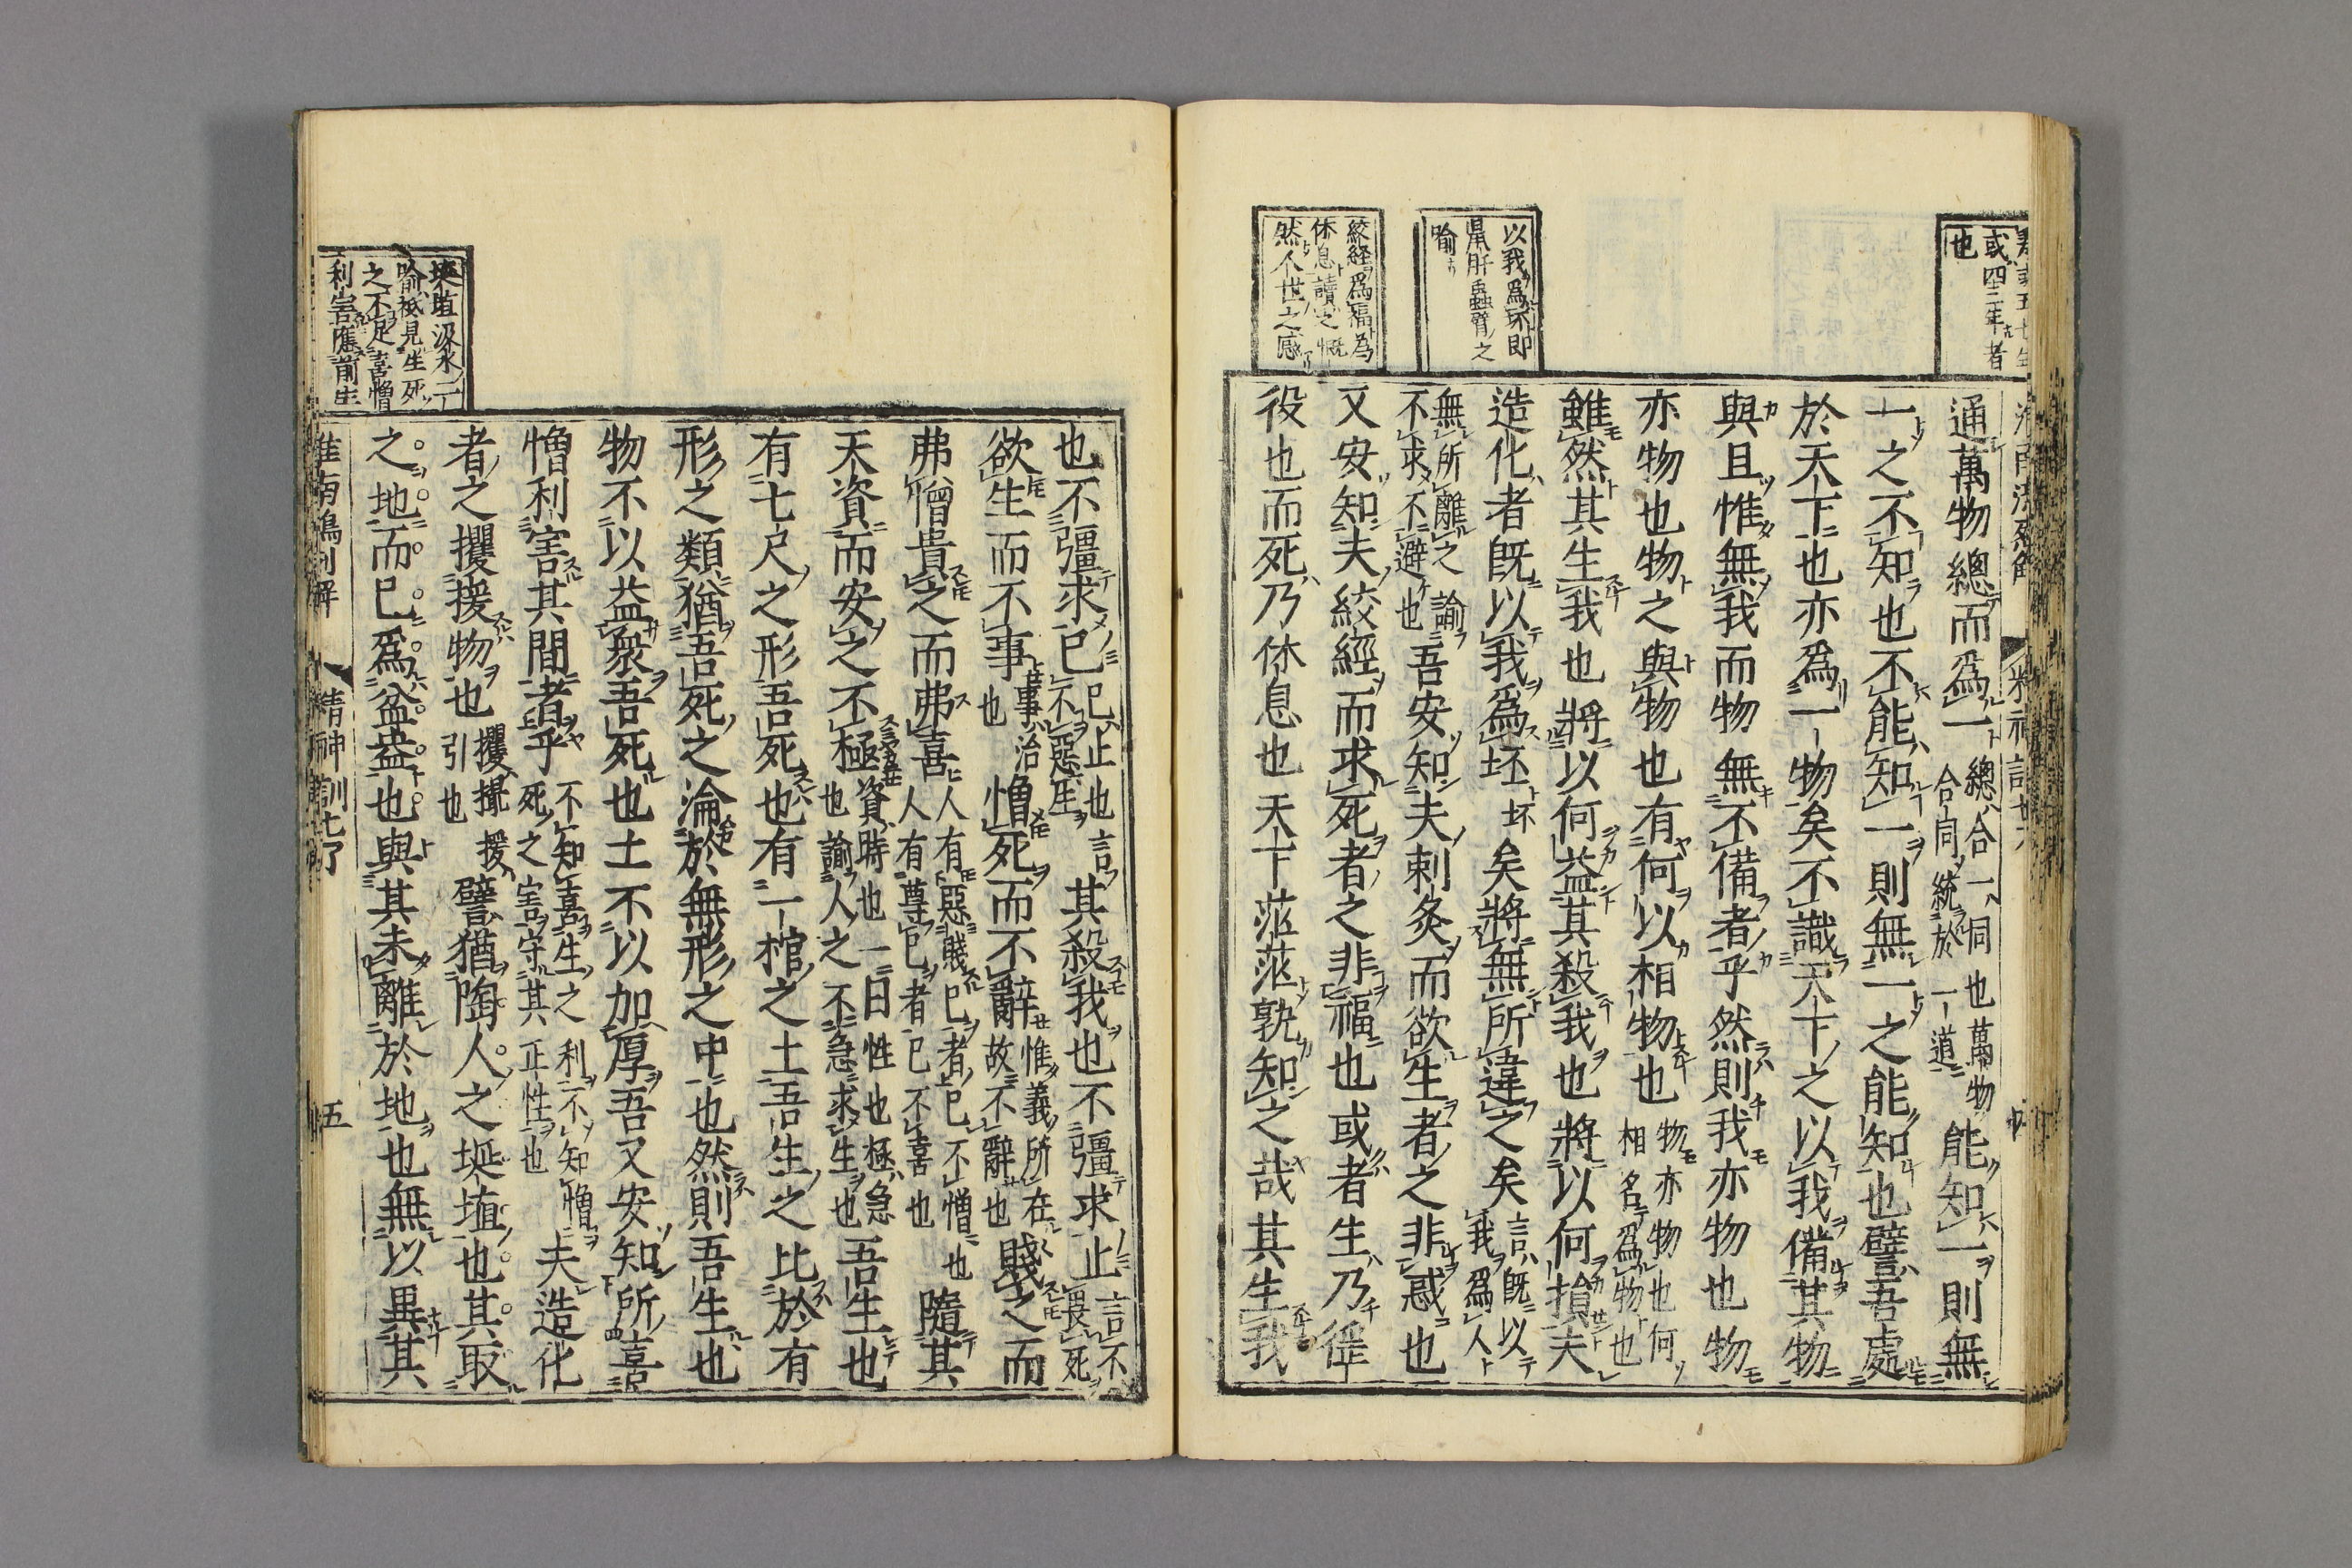 或四三年者
也
通萬物總而爲一總合一同也萬物合同統於一道能知一則無
一之不知也不能知一則無一之能知也譬吾處
於天下也亦爲一物矣不識天下之以我備其物
與且惟無我而物無不備者乎然則我亦物也物
亦物也物之與物也有何以相物也物亦物也何相名爲物也
雖然其生我也將以何益其殺我也將以何損夫
以我爲坏即
鼠肝蟲臂之
喻
造化者既以我爲坏坏矣將無所違之矣言既以我爲人
無所離之喻不求不避也吾安知夫刺灸而欲生者之非惑也
又安知夫絞經而求死者之非福也或者生乃徭
絞経爲福為
休息讀之慨
然人世之感
役也而死乃休息也天下茫茫孰知之哉其生我
也不彊求已已止也言不惡生其殺我也不彊求止言不畏死
欲生而不事事治也憎死而不辭惟義所在故不辭也賤之而
弗憎貴之而弗喜人有惡賤已者已不憎也人有尊已者已不喜也隨其
天資而安之不極資時也一曰性也極急也諭人之不急求生也吾生也
有七尺之形吾死也有一棺之土吾生之比於有
形之類猶吾死之淪於無形之中也然則吾生也
物不以益衆吾死也土不以加厚吾又安知所喜
憎利害其間者乎不知喜生之利不知憎死之害守其正性也夫造化
者之攫援物也攫撮援引也譬猶陶人之埏埴也其取
埏埴涊水二
喻祗見生死
之不足喜憎
利害應前生
之地而已爲盆盎也與其未離於地也無以異其
淮南鴻列解 精神訓七了 五